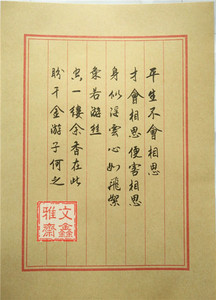 平生不會相思
才會相思便害相思
身似浮雲心如飛絮
氣若游丝
空一缕余香在此
盼千金游子何之
文鑫雅齋